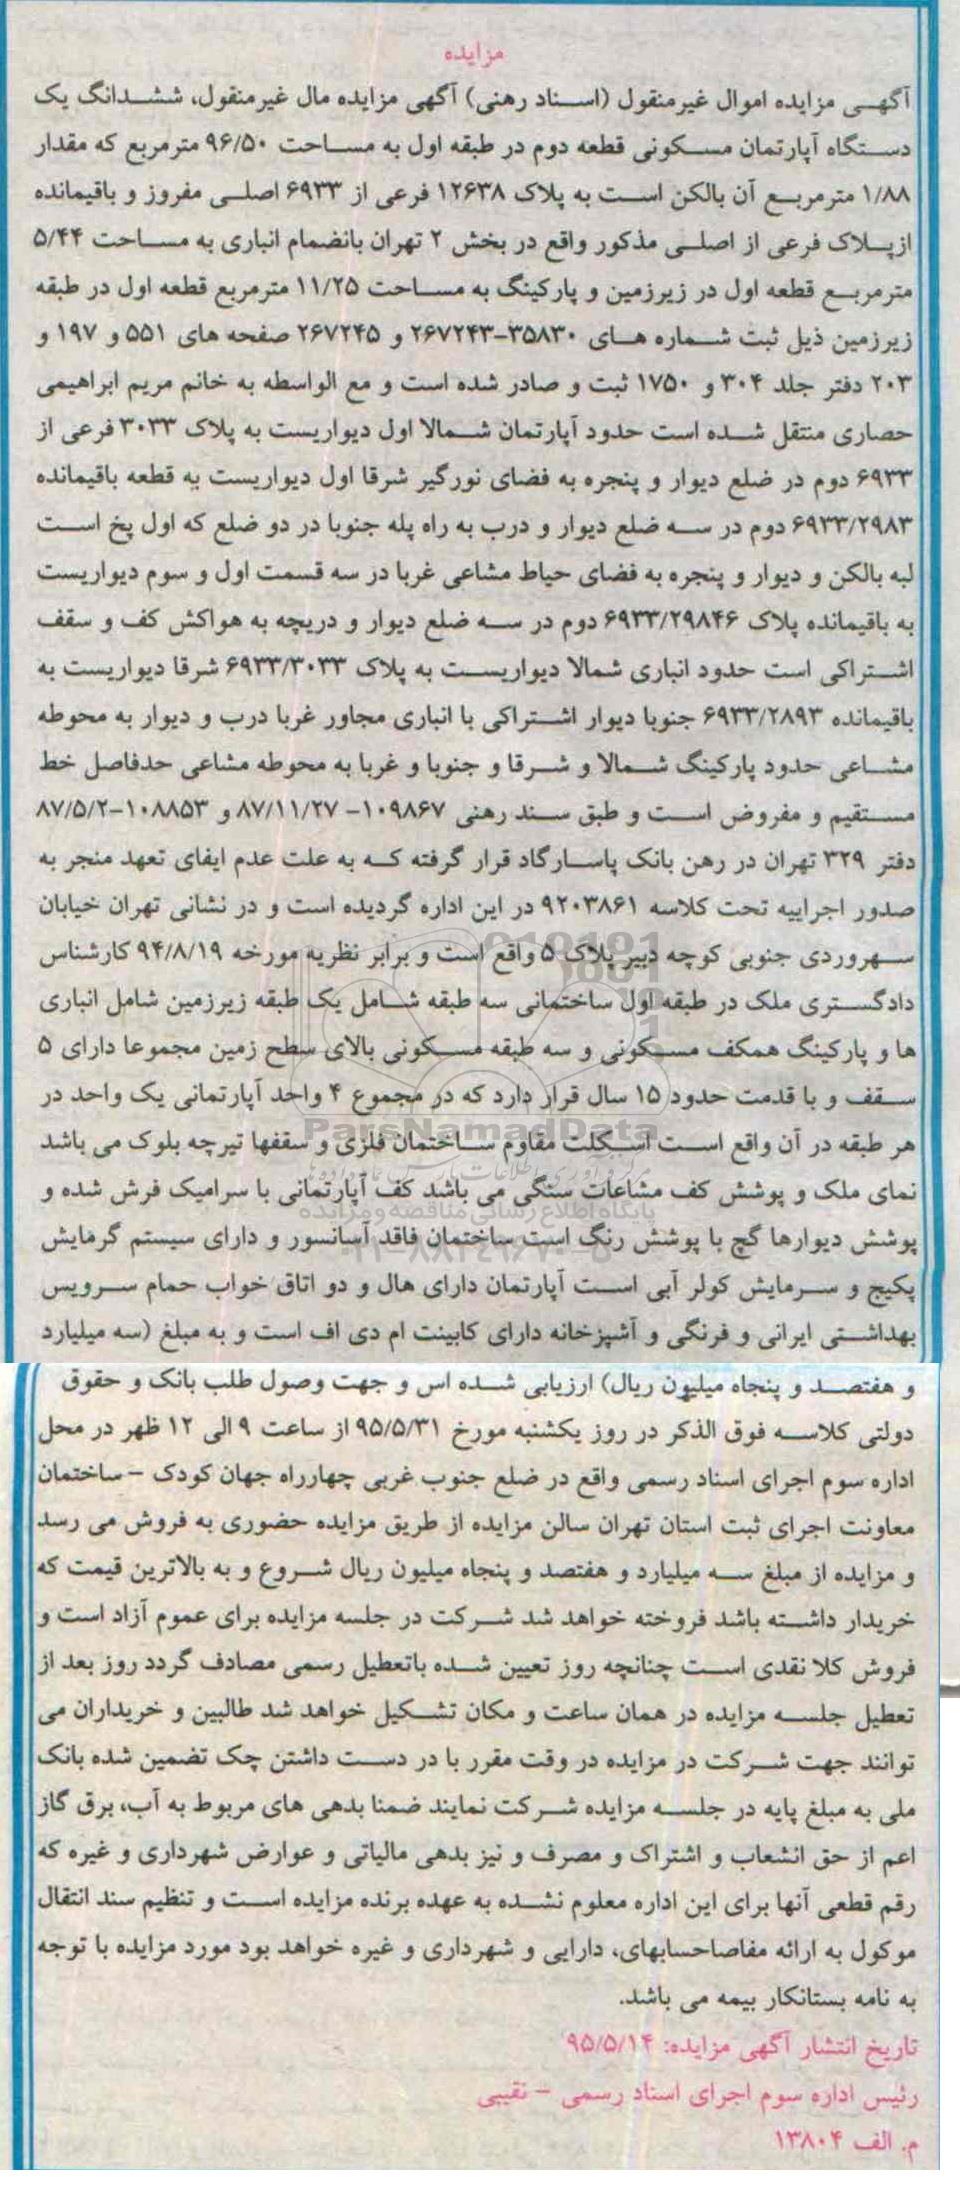 مزایده
آگهی مزایده اموال غیرمنقول (اسناد رهنی) آگهی مزایده مال غیرمنقول، ششدانگ یک
دستگاه آپارتمان مسکونی قطعه دوم در طبقه اول به مساحت ۹۶/۵۰ مترمربع که مقدار
۱/۸۸ مترمربع آن بالکن است به پلاک ۱۲۶۳۸ فرعی از ۶۹۳۳ اصلی مفروز و باقیمانده
ازپلاک فرعی از اصلی مذکور واقع در بخش ۲ تهران بانضمام انباری به مساحت ۵/۴۴
مترمربع قطعه اول در زیرزمین و پارکینگ به مساحت ۱۱/۲۵ مترمربع قطعه اول در طبقه
زیرزمین ذیل ثبت شماره های ۳۵۸۳۰-۲۶۷۲۴۳ و ۲۶۷۲۴۵ صفحه های ۵۵۱ و ۱۹۷ و
۲۰۳ دفتر جلد ۳۰۴ و ۱۷۵۰ ثبت و صادر شده است و مع الواسطه به خانم مریم ابراهیمی
حصاری منتقل شده است حدود آپارتمان شمالا اول دیواریست به پلاک ۳۰۳۳ فرعی از
۶۹۳۳ دوم در ضلع دیوار و پنجره به فضای نورگیر شرقا اول دیواریست به قطعه باقیمانده
۶۹۳۳/۲۹۸۳ دوم در سه ضلع دیوار و درب به راه پله جنوبا در دو ضلع که اول پخ است
لبه بالکن و دیوار و پنجره به فضای حیاط مشاعی غربا در سه قسمت اول و سوم دیواریست
به باقیمانده پلاک ۶۹۳۳/۲۹۸۴۶ دوم در سه ضلع دیوار و دریچه به هواکش کف و سقف
اشتراکی است حدود انباری شمالا دیواریست به پلاک ۶۹۳۳/۳۰۳۳ شرقا دیواریست به
باقیمانده ۶۹۳۳/۲۸۹۳ جنوبا دیوار اشتراکی با انباری مجاور غربا درب و دیوار به محوطه
مشاعی حدود پارکینگ شمالا و شرقا و جنوبا و غربا به محوطه مشاعی حدفاصل خط
مستقیم و مفروض است و طبق سند رهنی ۱۰۹۸۶۷- ۸۷/۱۱/۲۷ و ۱۰۸۸۵۳-۸۷/۵/۲
دفتر ۳۲۹ تهران در رهن بانک پاسارگاد قرار گرفته که به علت عدم ایفای تعهد منجر به
صدور اجراییه تحت کلاسه ۹۲۰۳۸۶۱ در این اداره گردیده است و در نشانی تهران خیابان
سهروردی جنوبی کوچه دبیر پلاک ۵ واقع است و برابر نظریه مورخه ۹۴/۸/۱۹ کارشناس
دادگستری ملک در طبقه اول ساختمانی سه طبقه شامل یک طبقه زیرزمین شامل انباری
ها و پارکینگ همکف مسکونی و سه طبقه مسکونی بالای سطح زمین مجموعا دارای ۵
سقف و با قدمت حدود ۱۵ سال قرار دارد که در مجموع ۴ واحد آپارتمانی یک واحد در
هر طبقه در آن واقع است اسکلت مقاوم ساختمان فلزی و سقفها تیرچه بلوک می باشد
نمای ملک و پوشش کف مشاعات سنگی می باشد کف آپارتمانی با سرامیک فرش شده و
پوشش دیوارها گچ با پوشش رنگ است ساختمان فاقد آسانسور و دارای سیستم گرمایش
پکیج و سرمایش کولر آبی است آپارتمان دارای هال و دو اتاق خواب حمام سرویس
بهداشتی ایرانی و فرنگی و آشپزخانه دارای کابینت ام دی اف است و به مبلغ (سه میلیارد
و هفتصد و پنجاه میلیون ریال) ارزیابی شده اس و جهت وصول طلب بانک و حقوق
دولتی کلاسه فوق الذکر در روز یکشنبه مورخ ۹۵/۵/۳۱ از ساعت ۹ الی ۱۲ ظهر در محل
اداره سوم اجرای اسناد رسمی واقع در ضلع جنوب غربی چهارراه جهان کودک – ساختمان
معاونت اجرای ثبت استان تهران سالن مزایده از طریق مزایده حضوری به فروش می رسد
و مزایده از مبلغ سه میلیارد و هفتصد و پنجاه میلیون ریال شروع و به بالاترین قیمت که
خریدار داشته باشد فروخته خواهد شد شرکت در جلسه مزایده برای عموم آزاد است و
فروش کلا نقدی است چنانچه روز تعیین شده باتعطیل رسمی مصادف گردد روز بعد از
تعطیل جلسه مزایده در همان ساعت و مکان تشکیل خواهد شد طالبین و خریداران می
توانند جهت شرکت در مزایده در وقت مقرر با در دست داشتن چک تضمین شده بانک
ملی به مبلغ پایه در جلسه مزایده شرکت نمایند ضمنا بدهی های مربوط به آب، برق گاز
اعم از حق انشعاب و اشتراک و مصرف و نیز بدهی مالیاتی و عوارض شهرداری و غیره که
رقم قطعی آنها برای این اداره معلوم نشده به عهده برنده مزایده است و تنظیم سند انتقال
موکول به ارائه مفاصاحسابهای، دارایی و شهرداری و غیره خواهد بود مورد مزایده با توجه
به نامه بستانکار بیمه می باشد.
تاریخ انتشار آگهی مزایده: ۹۵/۵/۱۴
رئیس اداره سوم اجرای اسناد رسمی – نقیبی
م. الف ۱۳۸۰۴
ParsNamadData
پایگاه اطلاع رسانی مناقصه و مزایده
۰۲۱-۸۸۳۴۹۶۷۰-۵